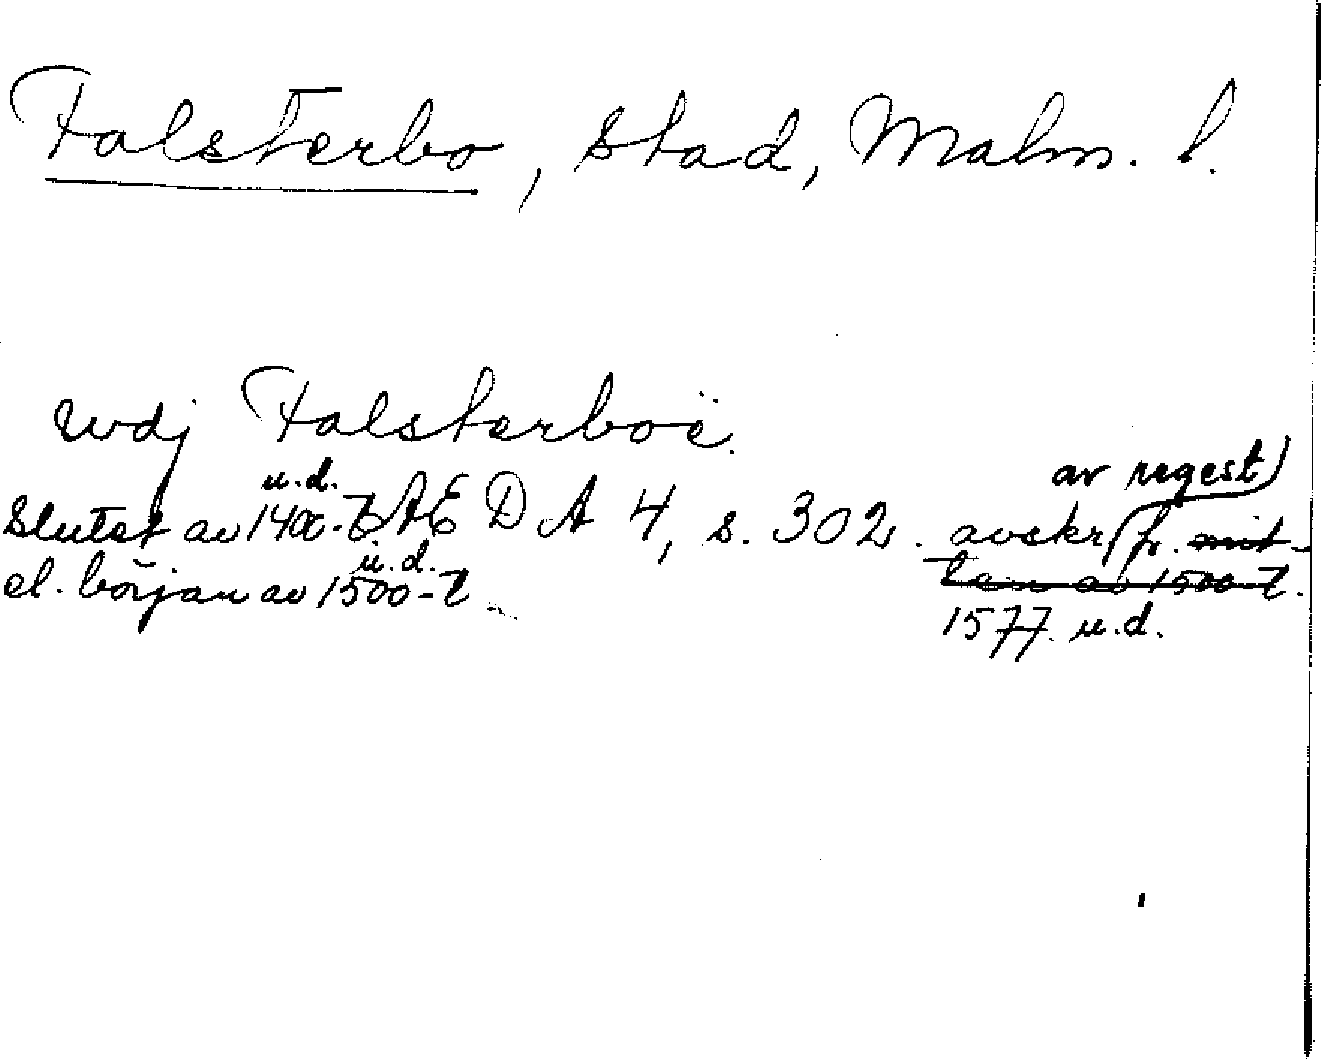 Falsterbo, stad, Malm. l.
wdj Falsterboë.
u.d. av regest
Slutet av 1400-t. ÆDA 4, s. 302. avskr. fr. mit-
u.d.
el. början av 1500-t ten av 1500-t.
1577. u.d.